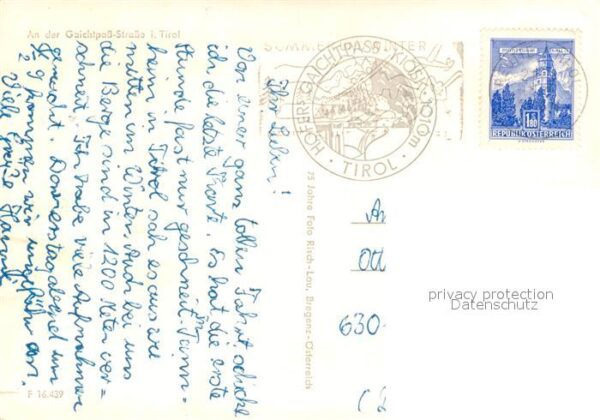 An der Gaichtpaß-Straße i. Tirol
Ihr Lieben!
Von einer ganz tollen Fahrt schicke
ich die letzte Karte. Es hat die erste
Stunde fast nur geschneit. Tann-
heim in Tirol sah es aus wie
mitten im Winter. Auch bei uns
die Berge sind in 1200 Meter ver-
schneit. Ich habe viele Aufnahmen
gemacht. Donnerstagabend um
kommen wir ungefähr an.
Viele Grüße
F 16.439
75 Jahre Foto Risch-Lau, Bregenz-Österreich
SOMMER WINTER
HÖFERS GAICHTPASS KIOSK · 1010m · TIROL ·
1.80
REPUBLIK ÖSTERREICH
An
Ott
630
privacy protection
Datenschutz